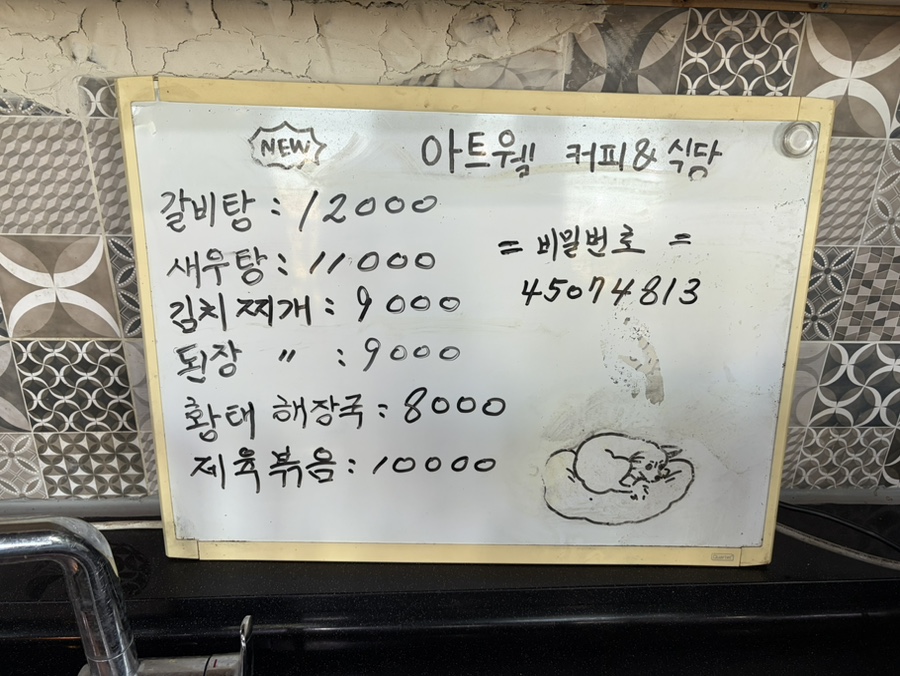 NEW
아트웰 커피&식당
갈비탕 : 12000
새우탕 : 11000
김치찌개 : 9000
된장 〃 : 9000
황태 해장국 : 8000
제육볶음 : 10000
= 비밀번호 =
45074813